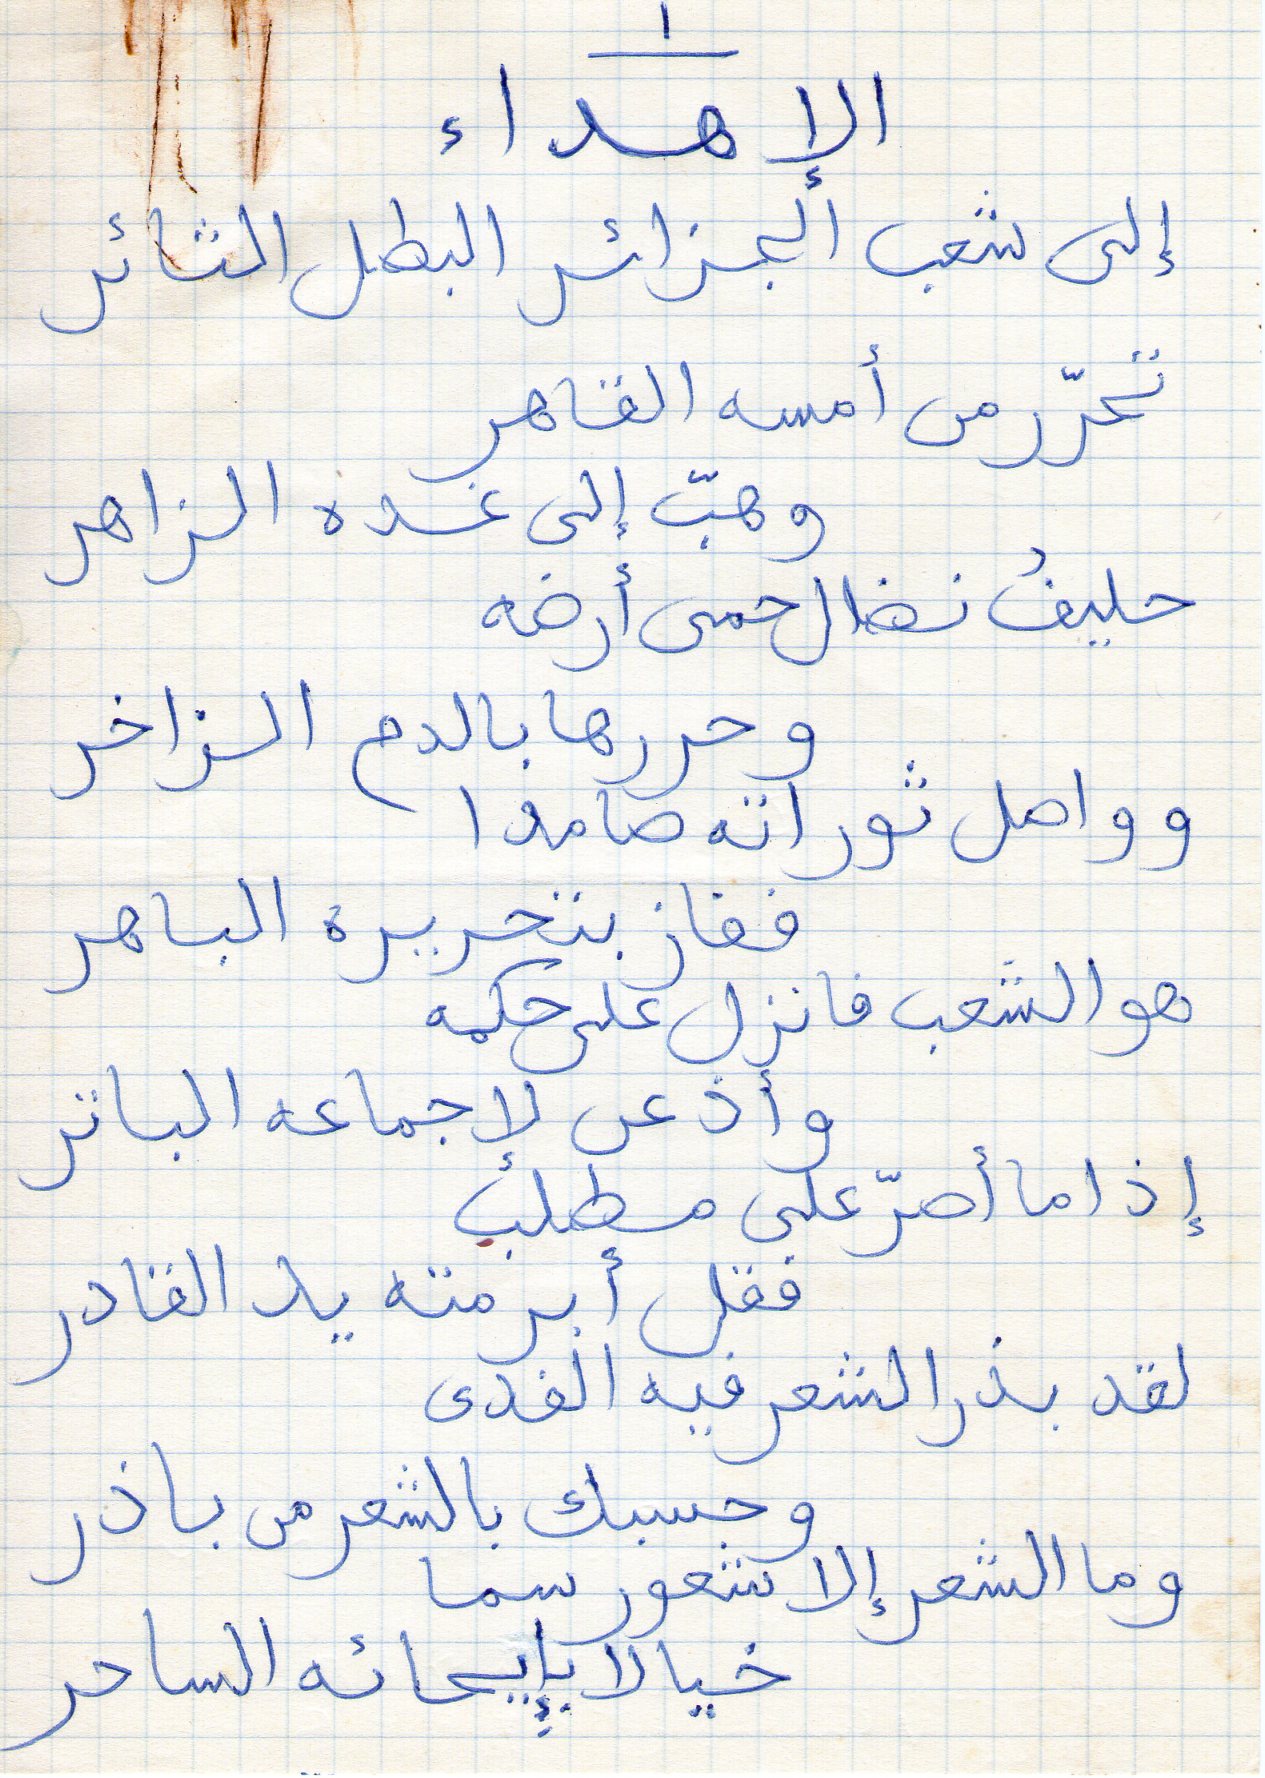 ١
الإهداء
إلى شعب الجزائر البطل الثائر
تحرّر من أمسه القاهر
وهبّ إلى غده الزاهر
حليفُ نضال حمى أرضه
وحررها بالدم الزاخر
وواصل ثوراته صامدا
ففاز بتحريره الباهر
هو الشعب فانزل على حكمه
وأذعن لإجماعه الباتر
إذا ما أصرّ على مطلب
فقل أبرمته يد القادر
لقد بذر الشعر فيه الفدى
وحسبك بالشعر من باذر
وما الشعر إلا شعور سما
خيالا بإيحائه الساحر